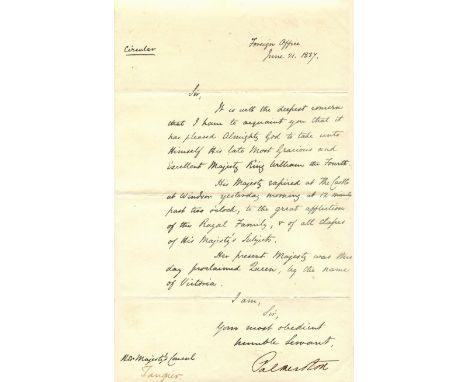 Circular
Foreign Office
June 21. 1837.
Sir,
It is with the deepest concern
that I have to acquaint you that it
has pleased Almighty God to take unto
Himself His late Most Gracious and
Excellent Majesty King William the Fourth.
His Majesty expired at The Castle
at Windsor yesterday morning at 12 minutes
past two o'clock, to the great affliction
of the Royal Family, & of all classes
of His Majesty's Subjects.
Her present Majesty was this
day proclaimed Queen, by the name
of Victoria.
I am,
Sir,
Your most obedient
humble Servant,
Palmerston
Her Majesty's Consul
Tangier